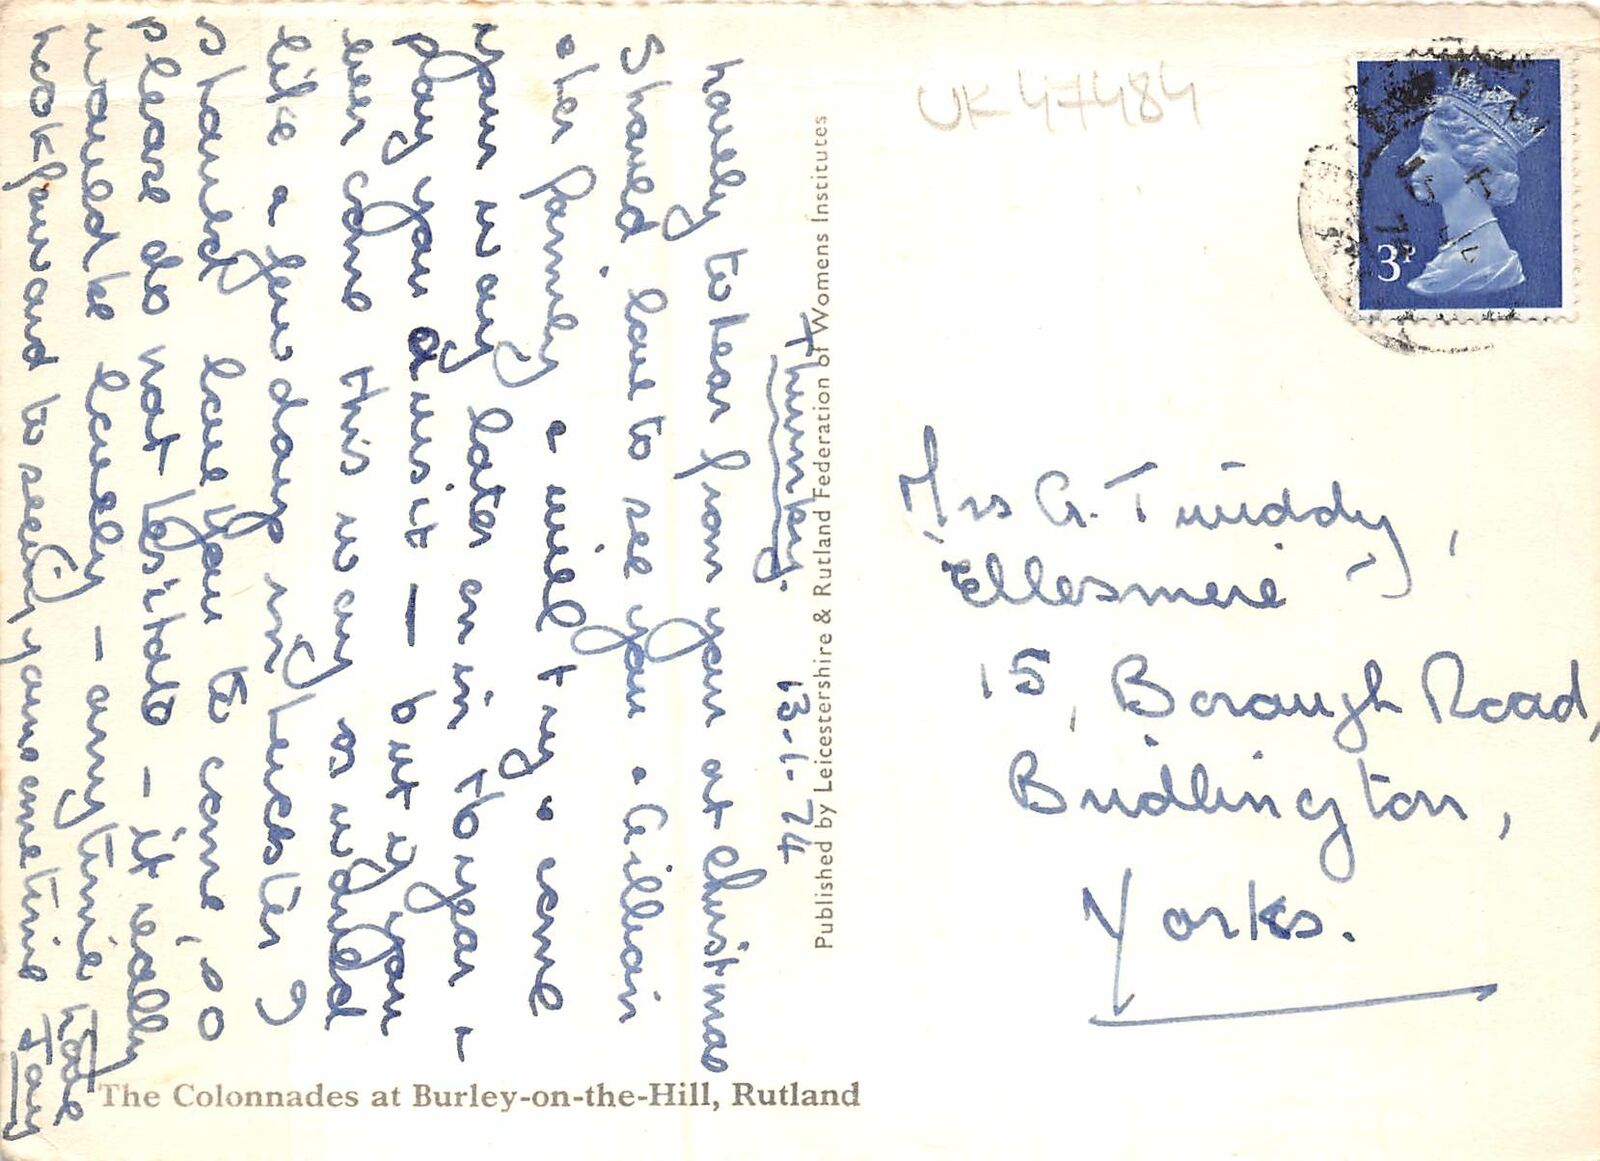 Thurnby. 13-1-74
Lovely to hear from you at Christmas
Should love to see you & Gillian
& her family & will try & come
your way later on in the year &
pay you a visit — but if you
ever come this way or would
like a few days in Leicester I
should love you to come, so
please do not hesitate - it really
would be lovely - anytime
Look forward to seeing you sometime
love
Joy
Published by Leicestershire & Rutland Federation of Womens Institutes
The Colonnades at Burley-on-the-Hill, Rutland
UK 47484
3P
Mrs G. Twiddy,
"Ellesmere"
15, Borough Road,
Bridlington,
Yorks.